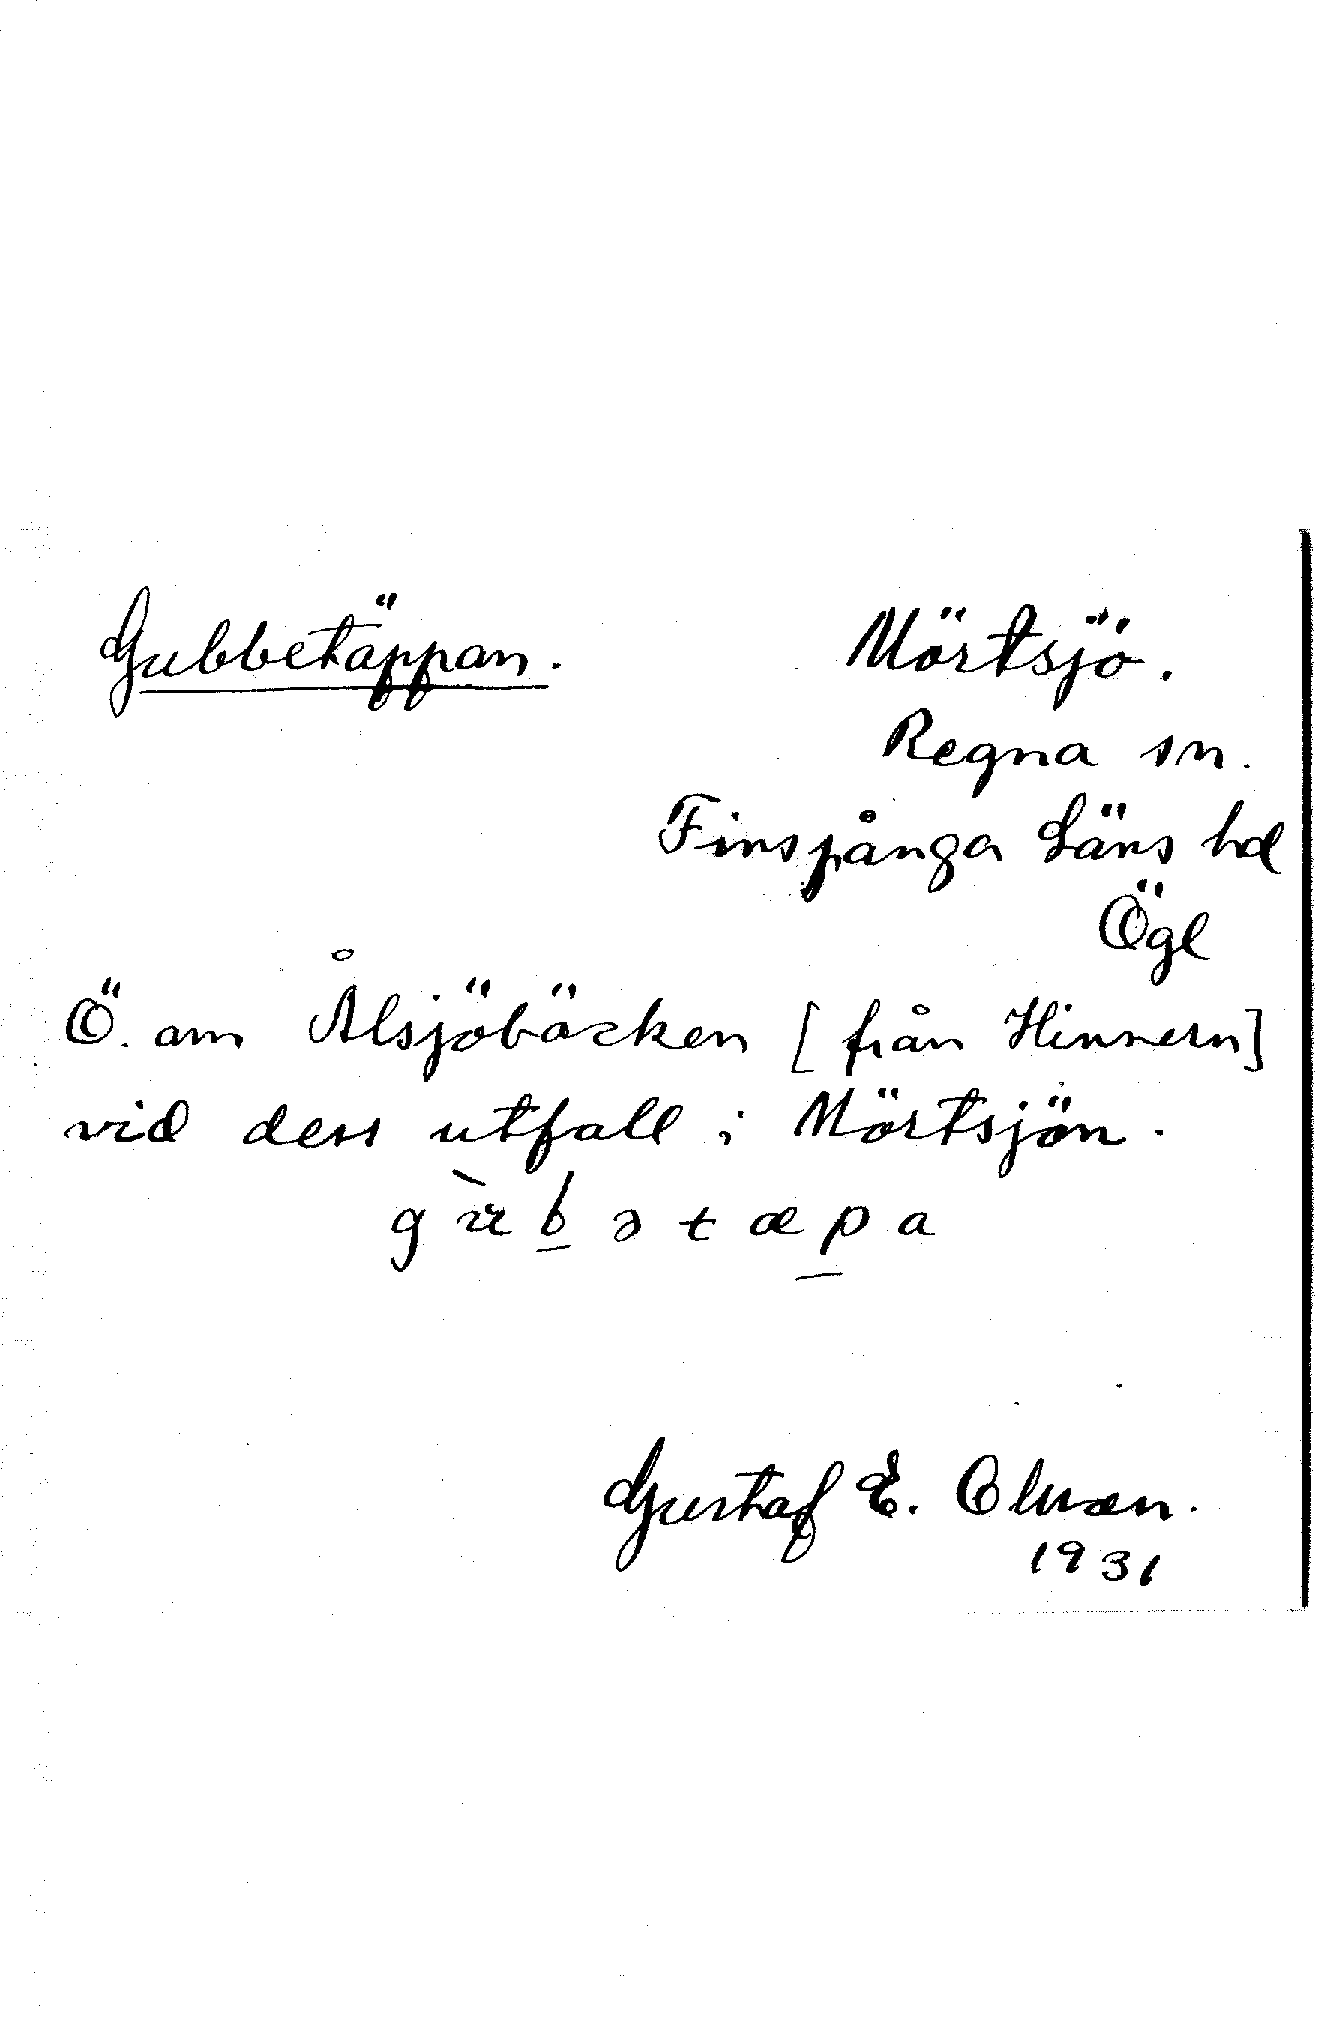 Gubbetäppan. Mörtsjö.
Regna sn.
Finspånga Läns hd
Ögl
Ö. om Ålsjöbäcken [från Hinnern]
vid dess utfall i Mörtsjön.
g ù b̲ ə t æ p̲ a
Gustaf E.
1931